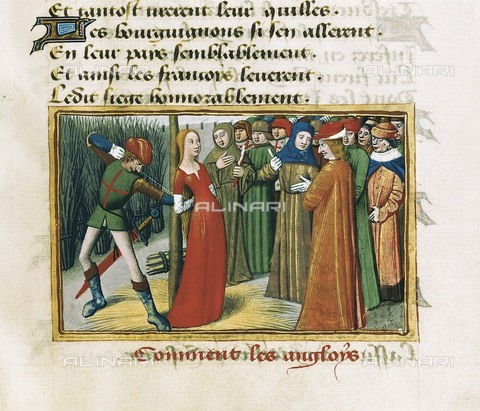 Et tantost tirerent leur quilles.
Les bourguignons si sen allerent.
En leur pais semblablement.
Et ainsi les francoys leuerent.
Ledit siege honnorablement.
ALINARI
Comment les angloys